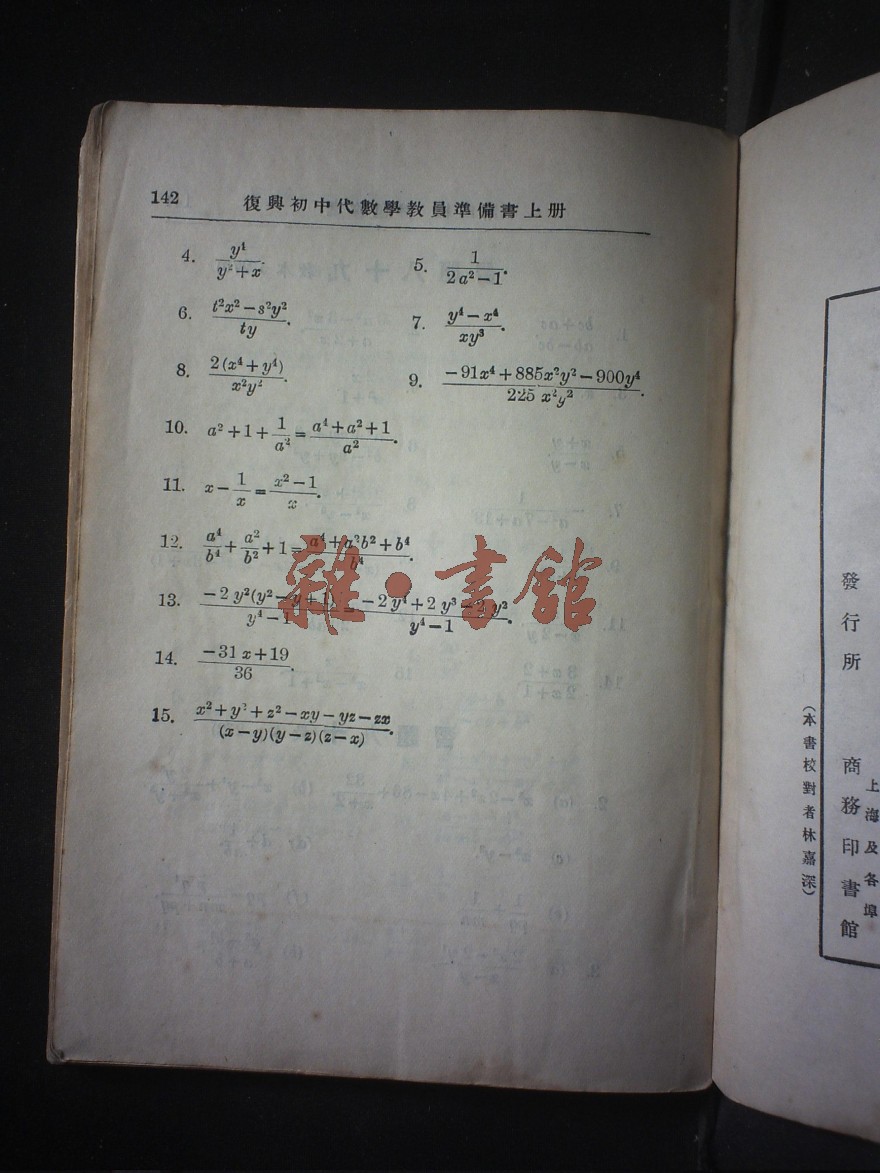 142 復興初中代數學教員準備書上册
4. y⁴/(y²+x). 5. 1/(2a²−1).
6. (t²x²−s²y²)/(ty). 7. (y⁴−x⁴)/(xy³).
8. 2(x⁴+y⁴)/(x²y²). 9. (−91x⁴+885x²y²−900y⁴)/(225x²y²).
10. a²+1+1/a²=(a⁴+a²+1)/a².
11. x−1/x=(x²−1)/x.
12. a⁴/b⁴+a²/b²+1=(a⁴+a²b²+b⁴)/b⁴.
13. −2y²(y²−y+1)/(y⁴−1)=(−2y⁴+2y³−2y²)/(y⁴−1).
14. (−31x+19)/36.
15. (x²+y²+z²−xy−yz−zx)/((x−y)(y−z)(z−x)).
雜·書館
發行所 商務印書館
上海及各埠
(本書校對者林嘉深)